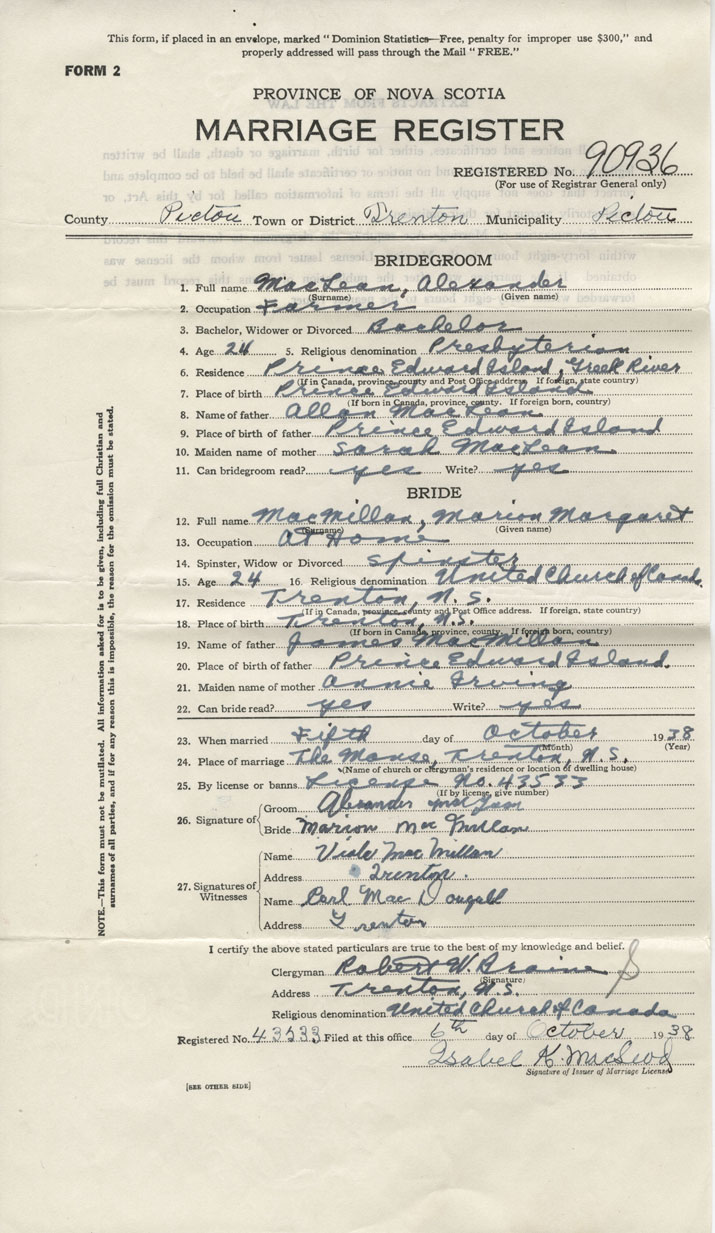 This form, if placed in an envelope, marked "Dominion Statistics—Free, penalty for improper use $300," and
properly addressed will pass through the Mail "FREE."
FORM 2
PROVINCE OF NOVA SCOTIA
MARRIAGE REGISTER
REGISTERED No. 90936
(For use of Registrar General only)
County Pictou Town or District Trenton Municipality Pictou
BRIDEGROOM
1. Full name MacLean, Alexander
(Surname) (Given name)
2. Occupation Farmer
3. Bachelor, Widower or Divorced Bachelor
4. Age 24 5. Religious denomination Presbyterian
6. Residence Prince Edward Island, Greek River
(If in Canada, province, county and Post Office address. If foreign, state country)
7. Place of birth Prince Edward Island
(If born in Canada, province, county. If foreign born, country)
8. Name of father Allan MacLean
9. Place of birth of father Prince Edward Island
10. Maiden name of mother Sarah MacLean
11. Can bridegroom read? yes Write? yes
BRIDE
12. Full name MacMillan, Marion Margaret
(Surname) (Given name)
13. Occupation At Home
14. Spinster, Widow or Divorced Spinster
15. Age 24 16. Religious denomination United Church of Canada
17. Residence Trenton, N.S.
(If in Canada, province, county and Post Office address. If foreign, state country)
18. Place of birth Trenton, N.S.
(If born in Canada, province, county. If foreign born, country)
19. Name of father James MacMillan
20. Place of birth of father Prince Edward Island
21. Maiden name of mother Annie Irving
22. Can bride read? yes Write? yes
23. When married Fifth day of October 1938
(Month) (Year)
24. Place of marriage The Manse, Trenton, N.S.
(Name of church or clergyman's residence or location of dwelling house)
25. By license or banns License No. 43533
(If by license, give number)
26. Signature of
Groom Alexander McLean
Bride Marion MacMillan
27. Signatures of Witnesses
Name MacMillan
Address Trenton.
Name Pearl MacDougall
Address Trenton
I certify the above stated particulars are true to the best of my knowledge and belief.
Clergyman Robert W. Braine
(Signature)
Address Trenton, N.S.
Religious denomination United Church of Canada
Registered No. 43533 Filed at this office 6th day of October 1938
Isabel K. MacLeod
Signature of Issuer of Marriage License
[SEE OTHER SIDE]
NOTE.—This form must not be mutilated. All information asked for is to be given, including full Christian and
surnames of all parties, and if for any reason this is impossible, the reason for the omission must be stated.